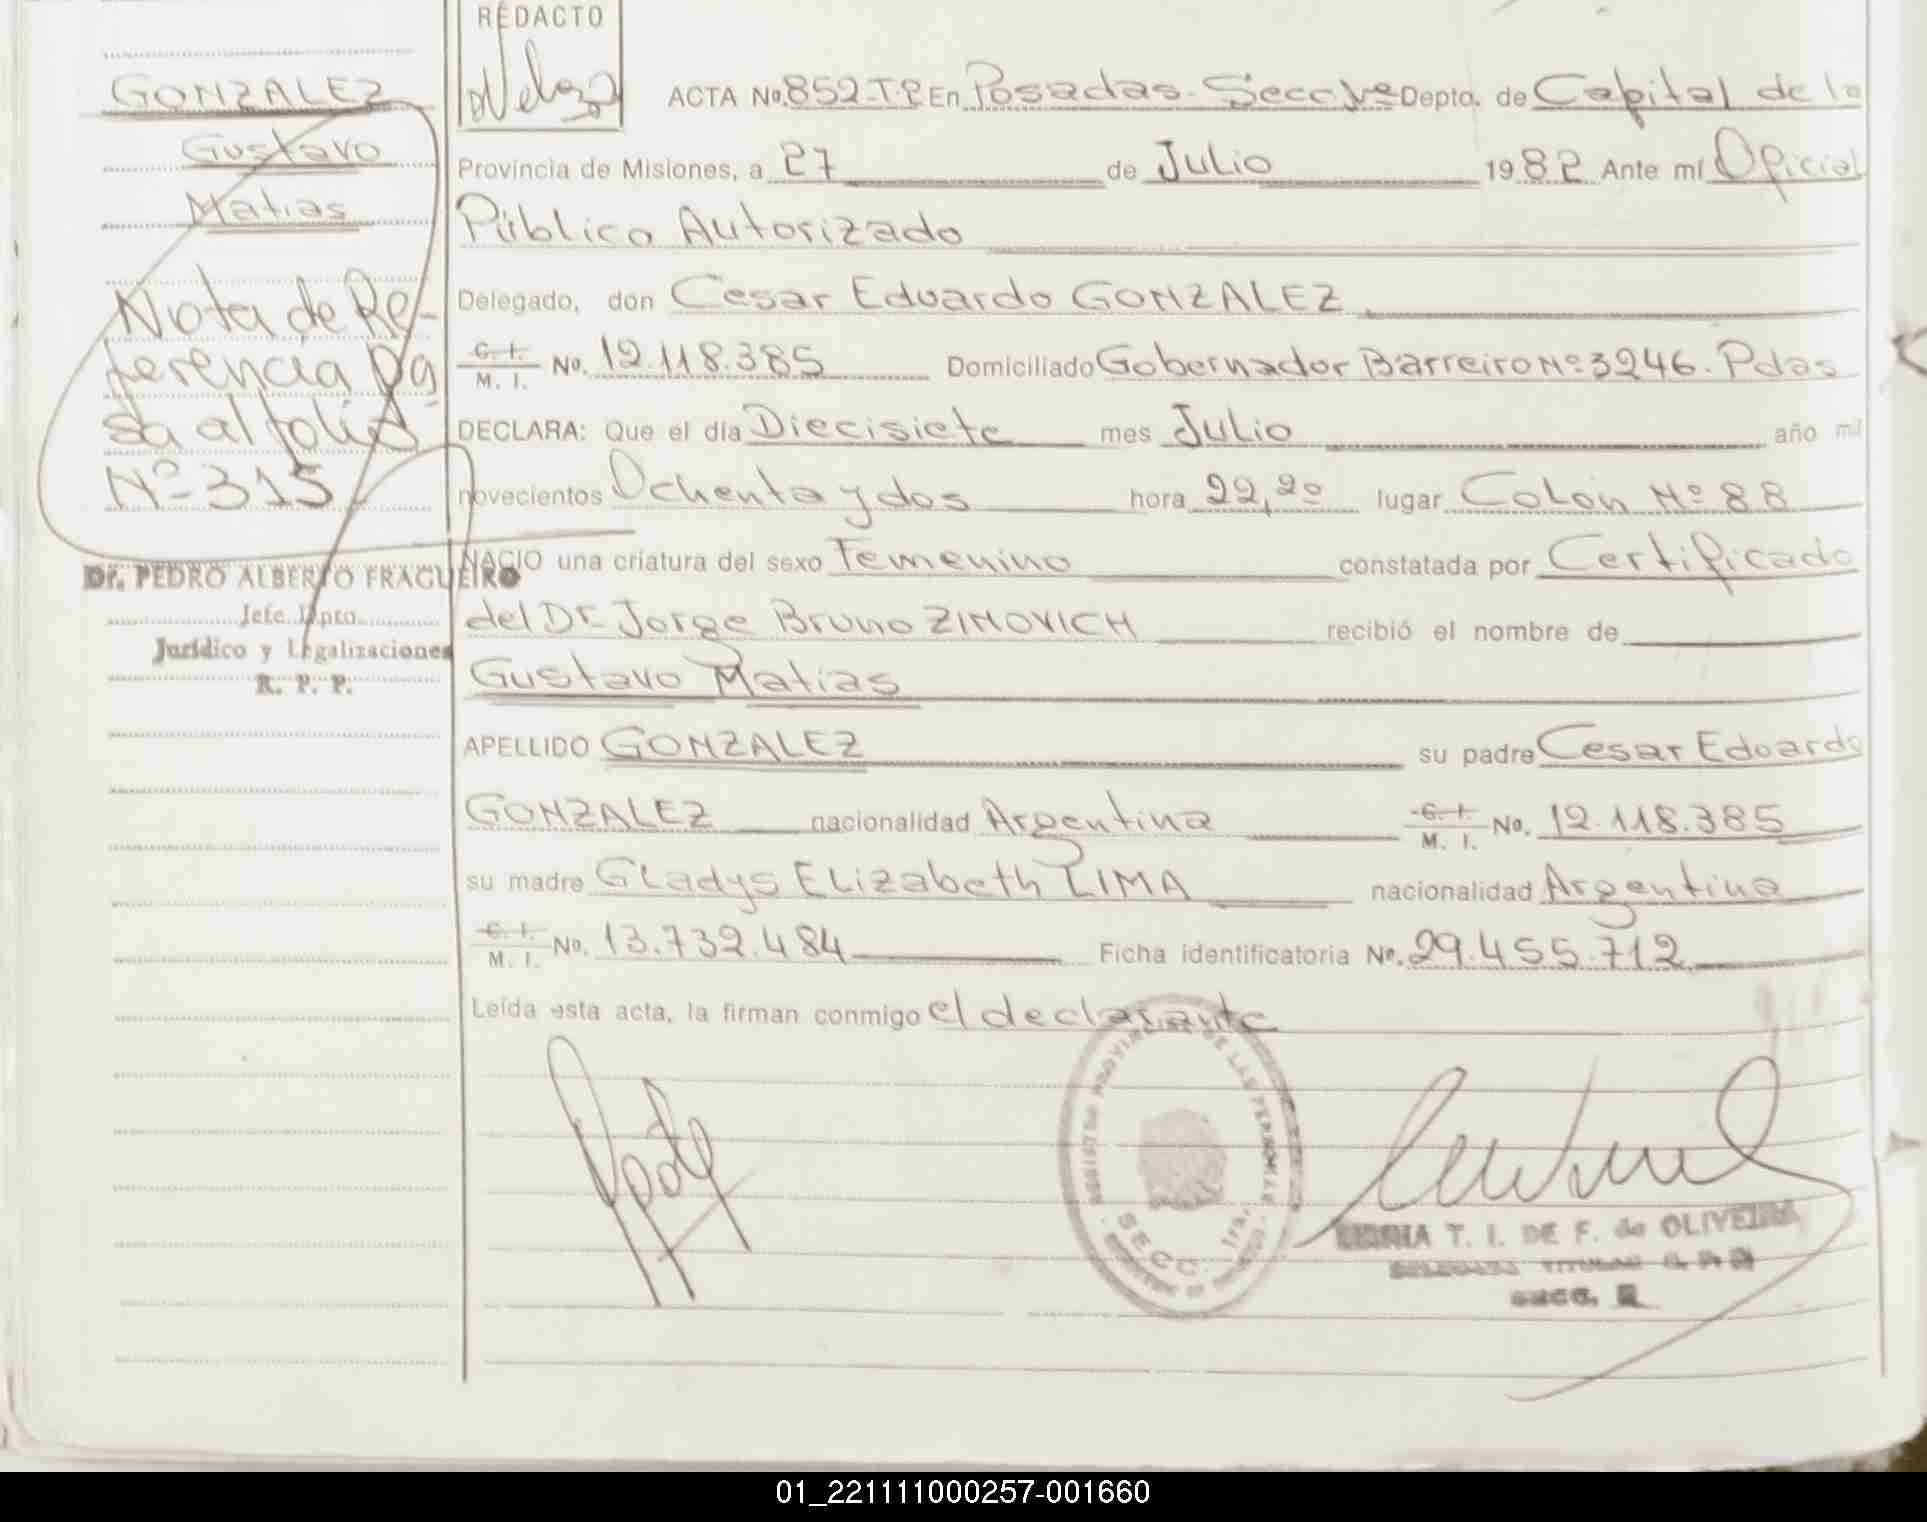 REDACTO
Veloso
GONZALEZ
Gustavo
Matias
Nota de Re-
ferencia Pa
sa al folio
Nº 315
Dr. PEDRO ALBERTO FRAGUEIRO
Jefe Dpto.
Jurídico y Legalizaciones
R. P. P.
ACTA No. 852-T.P En Posadas. Secc 1ª Depto. de Capital de la
Provincia de Misiones, a 27 de Julio 1982 Ante mí Oficial
Público Autorizado
Delegado, don Cesar Eduardo GONZALEZ
C. I. M. I. No. 12.118.385 Domiciliado Gobernador Barreiro Nº 3246. Pdas
DECLARA: Que el día Diecisiete mes Julio año mil
novecientos Ochenta y dos hora 22,20 lugar Colón Nº 88
NACIO una criatura del sexo Femenino constatada por Certificado
del Dr. Jorge Bruno ZINOVICH recibió el nombre de
Gustavo Matias
APELLIDO GONZALEZ su padre Cesar Eduardo
GONZALEZ nacionalidad Argentina C. I. M. I. No. 12.118.385
su madre Gladys Elizabeth LIMA nacionalidad Argentina
C. I. M. I. No. 13.732.484 Ficha identificatoria No. 29.455.712
Leída esta acta, la firman conmigo el declarante
REGISTRO PROVINCIAL DE LAS PERSONAS
SECC. 1ra.
MARIA T. I. DE F. de OLIVEIRA
DELEGADO TITULAR
SECC.
01_221111000257-001660